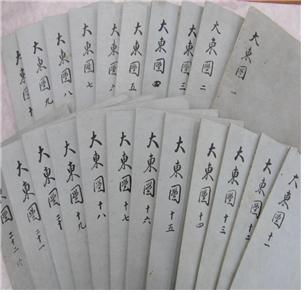 大東圖 一
大東圖 二
大東圖 三
大東圖 四
大東圖 五
大東圖
大東圖 七
大東圖 八
大東圖 九
大東圖
大東圖 十一
大東圖 十二
大東圖 十三
大東圖 十四
大東圖 十五
大東圖 十六
大東圖 十七
大東圖 十八
大東圖 十九
大東圖 二十
大東圖 二十一
圖 二十二